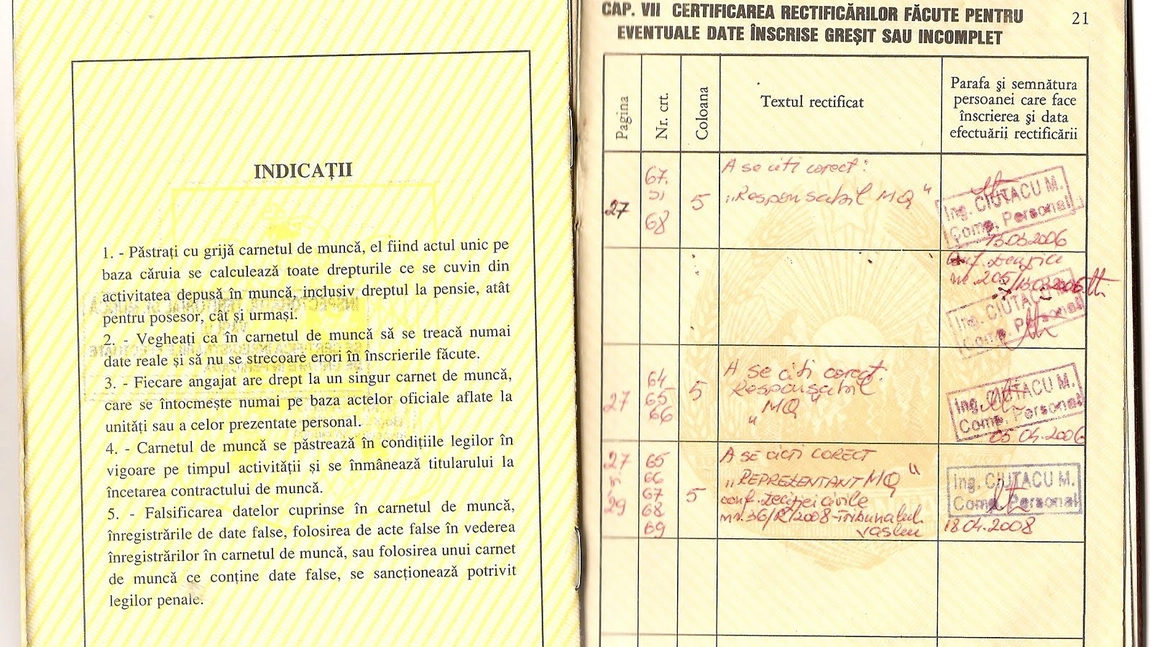 INDICAȚII
1. - Păstrați cu grijă carnetul de muncă, el fiind actul unic pe
baza căruia se calculează toate drepturile ce se cuvin din
activitatea depusă în muncă, inclusiv dreptul la pensie, atât
pentru posesor, cât și urmași.
2. - Vegheați ca în carnetul de muncă să se treacă numai
date reale și să nu se strecoare erori în înscrierile făcute.
3. - Fiecare angajat are drept la un singur carnet de muncă,
care se întocmește numai pe baza actelor oficiale aflate la
unități sau a celor prezentate personal.
4. - Carnetul de muncă se păstrează în condițiile legilor în
vigoare pe timpul activității și se înmânează titularului la
încetarea contractului de muncă.
5. - Falsificarea datelor cuprinse în carnetul de muncă,
înregistrările de date false, folosirea de acte false în vederea
înregistrărilor în carnetul de muncă, sau folosirea unui carnet
de muncă ce conține date false, se sancționează potrivit
legilor penale.
CAP. VII CERTIFICAREA RECTIFICĂRILOR FĂCUTE PENTRU
EVENTUALE DATE ÎNSCRISE GREȘIT SAU INCOMPLET
21
Pagina
Nr. crt.
Coloana
Textul rectificat
Parafa și semnătura
persoanei care face
înscrierea și data
efectuării rectificării
27
67.
și
68
5
A se citi corect:
"Responsabil MQ"
Ing. CIUTACU M.
Comp. Personal
13.03.2006
conf. Decizia
nr. 205/13.03.2006
Ing. CIUTACU M.
Comp. Personal
27
64
65
66
5
A se citi corect.
Responsabil
"MQ"
Ing. CIUTACU M.
Comp. Personal
05.04.2006
27
29
65
66
67
68
69
5
A SE CITI CORECT
"REPREZENTANT MQ"
conf. Deciziei civile
nr. 36/R/2008-Tribunalul
Vaslui
Ing. CIUTACU M.
Comp. Personal
18.04.2008